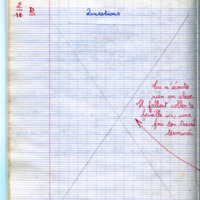 2/10 B Questions
Tu n'écoutes
rien en classe
Il fallait coller ta
feuille ici, une
fois ton travail
terminé